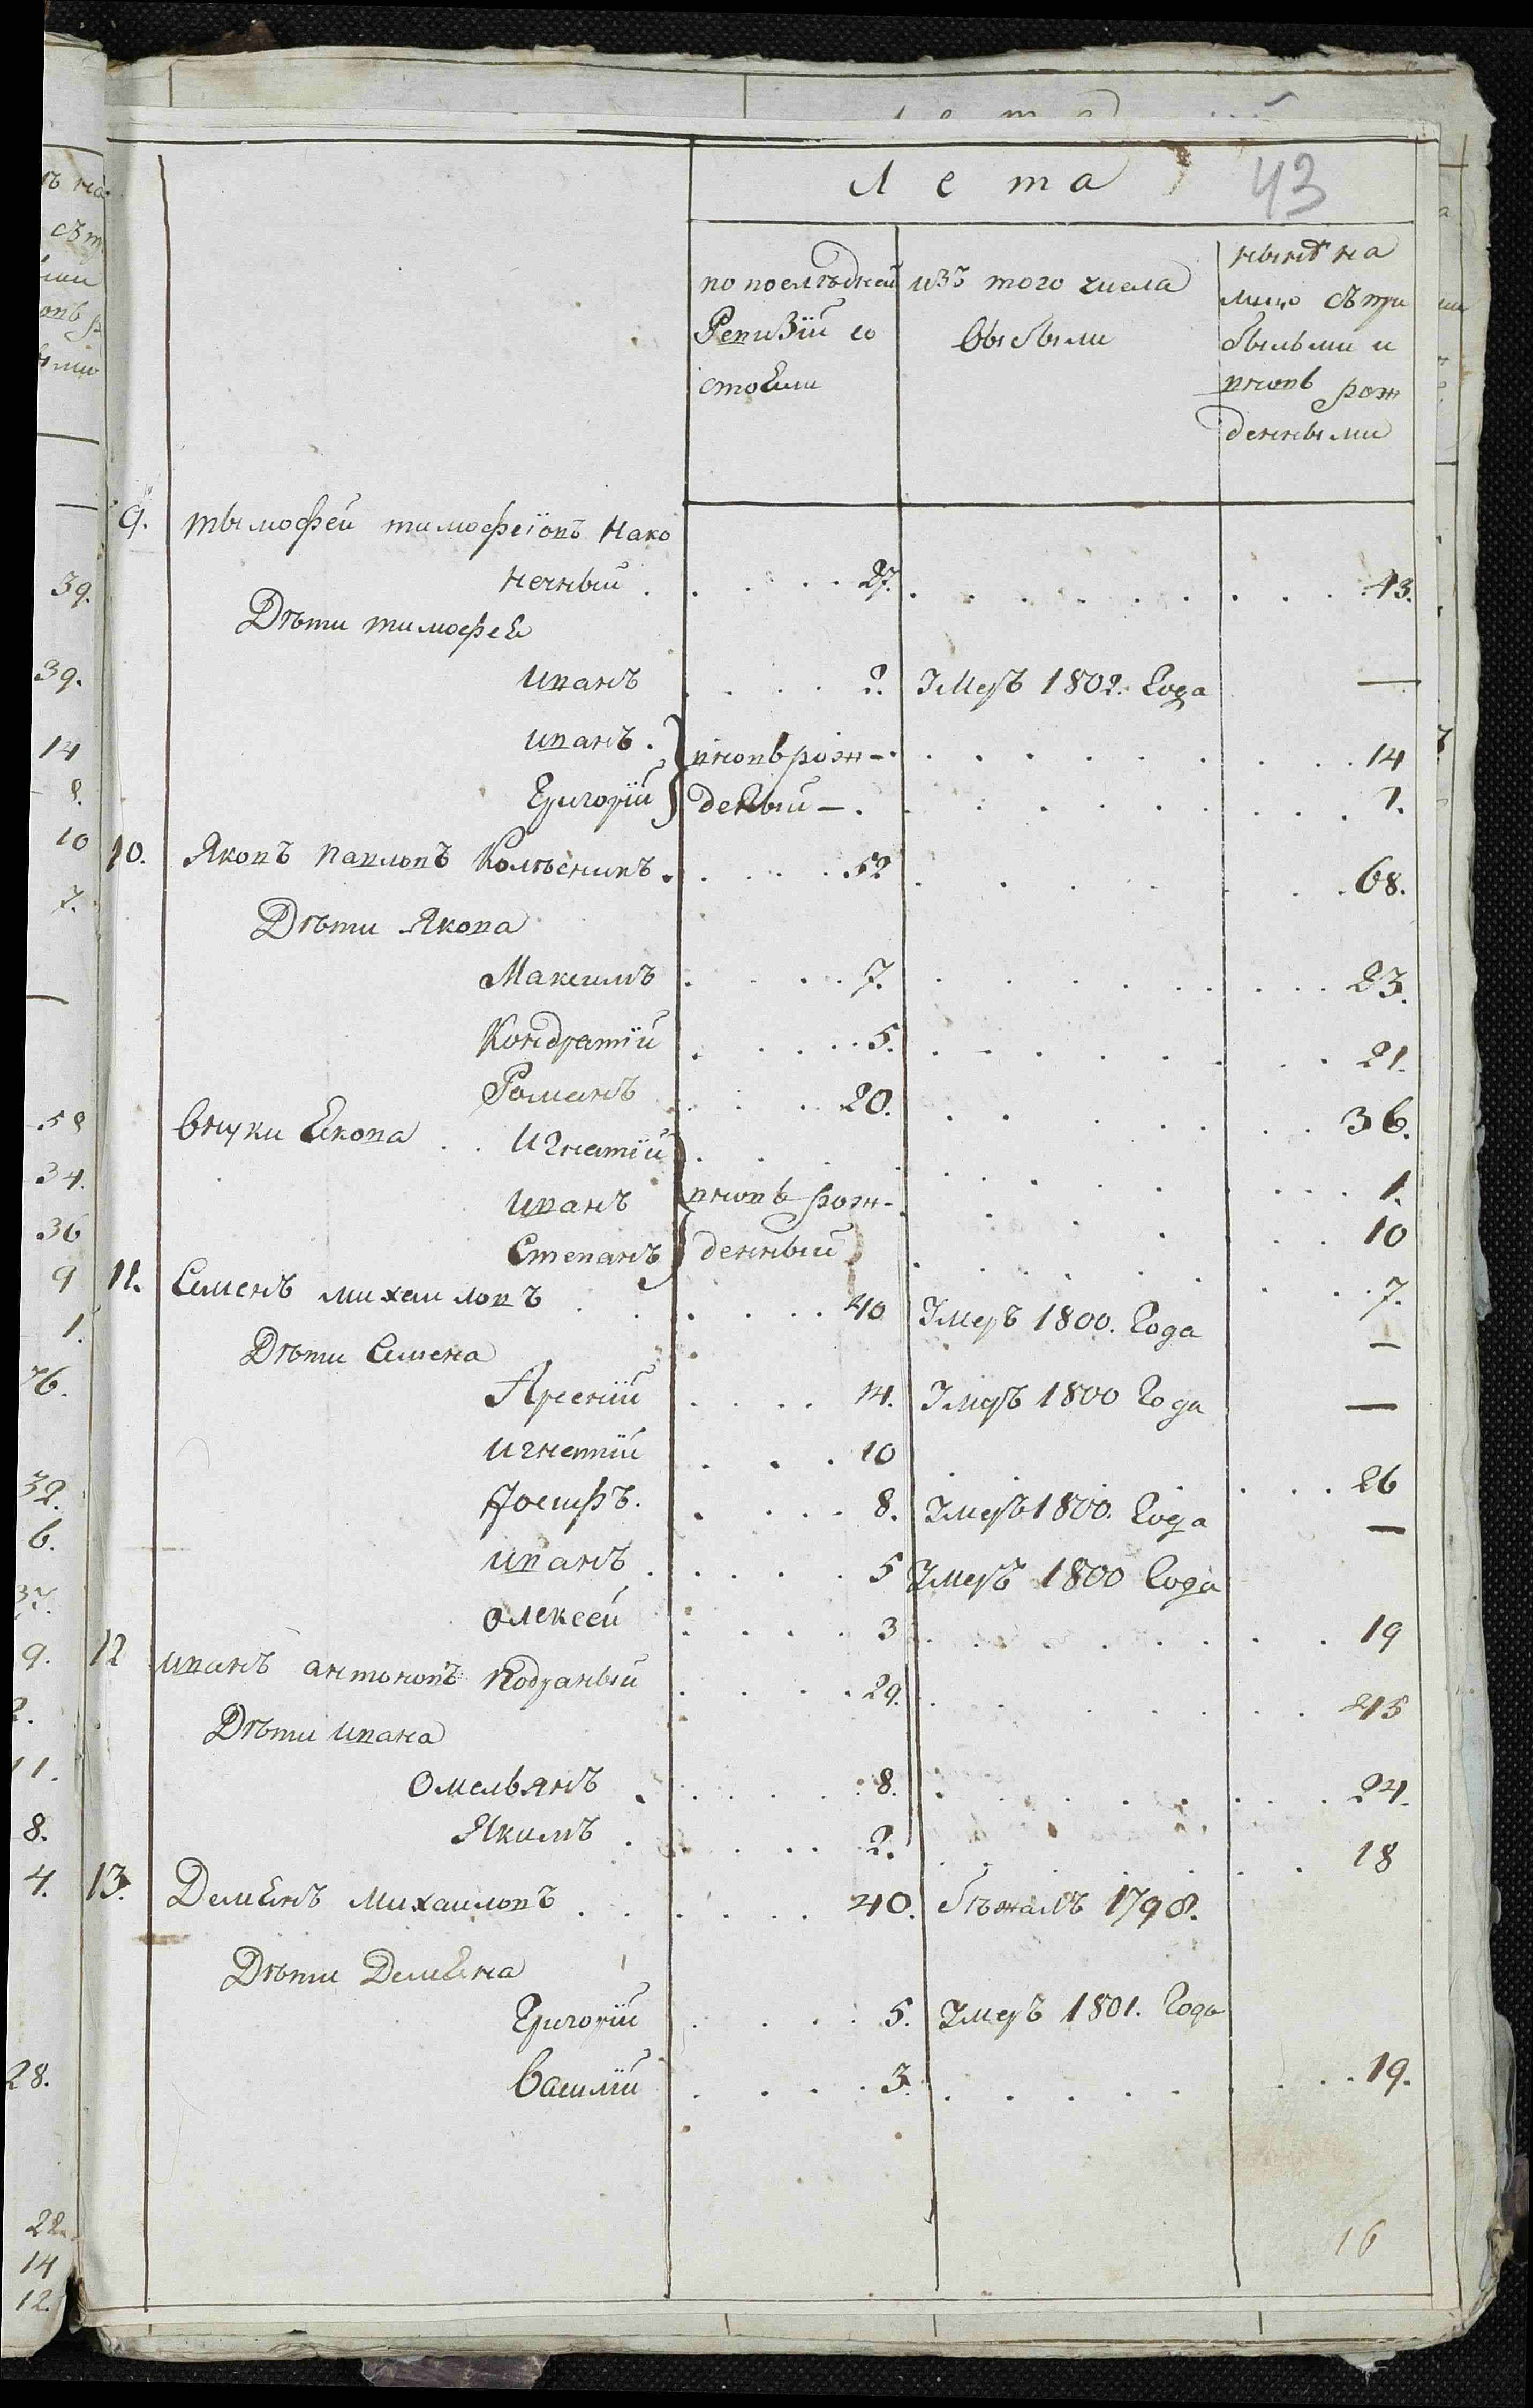 Лета
43
по послѣдней Ревизіи со стоѧли
изъ того числа выбыли
нынѣ на лицо съ при былыми и вновь рож денными
9. тымофей тимофеіовъ Нако
нечный . . . . . 27. . . . . . . . 43.
Дѣти тимофеѧ
иванъ . . . . 2. Умеръ 1802. Года —
иванъ . вновь рож- . . . . . . . 14
Григорій деный - . . . . . . . 7.
10. Яковъ павловъ Колѣсникъ . . . . . 52 . . . . . . 68.
Дѣти Якова
Максимъ . . . . 7. . . . . . . . 23.
Кондратій . . . . 5. . . . . . . . 21.
Романъ . . . 20. . . . . . . 36.
внуки Ѧкова . . Игнатій . . . . . . . . . 1.
иванъ вновь рож- . . . . . 10
Степанъ денный . . . . . . . 7.
11. Семенъ михаиловъ . . . . . 40 Умеръ 1800. Года —
Дѣти Семена
Арсеній . . . . 14. Умеръ 1800 Года —
игнатій . . . 10 . . . . . . . 26
Іосифъ. . . . . 8. Умеръ 1800. Года —
иванъ . . . . . 5 Умеръ 1800 Года
олексей . . . . 3 . . . . . . . 19
12 иванъ антоновъ Кодраный . . . . 29. . . . . . . 45
Дѣти ивана
Омельянъ . . . . . 8. . . . . . . . 24.
Якимъ . . . . . 2. . . . . . . 18
13. Демѧнъ Михаиловъ . . . . . . 40. бѣжалъ 1798.
Дѣти Демѧна
Григорій . . . . 5. Умеръ 1801. Года
василій . . . . 3. . . . . . . . 19.
16